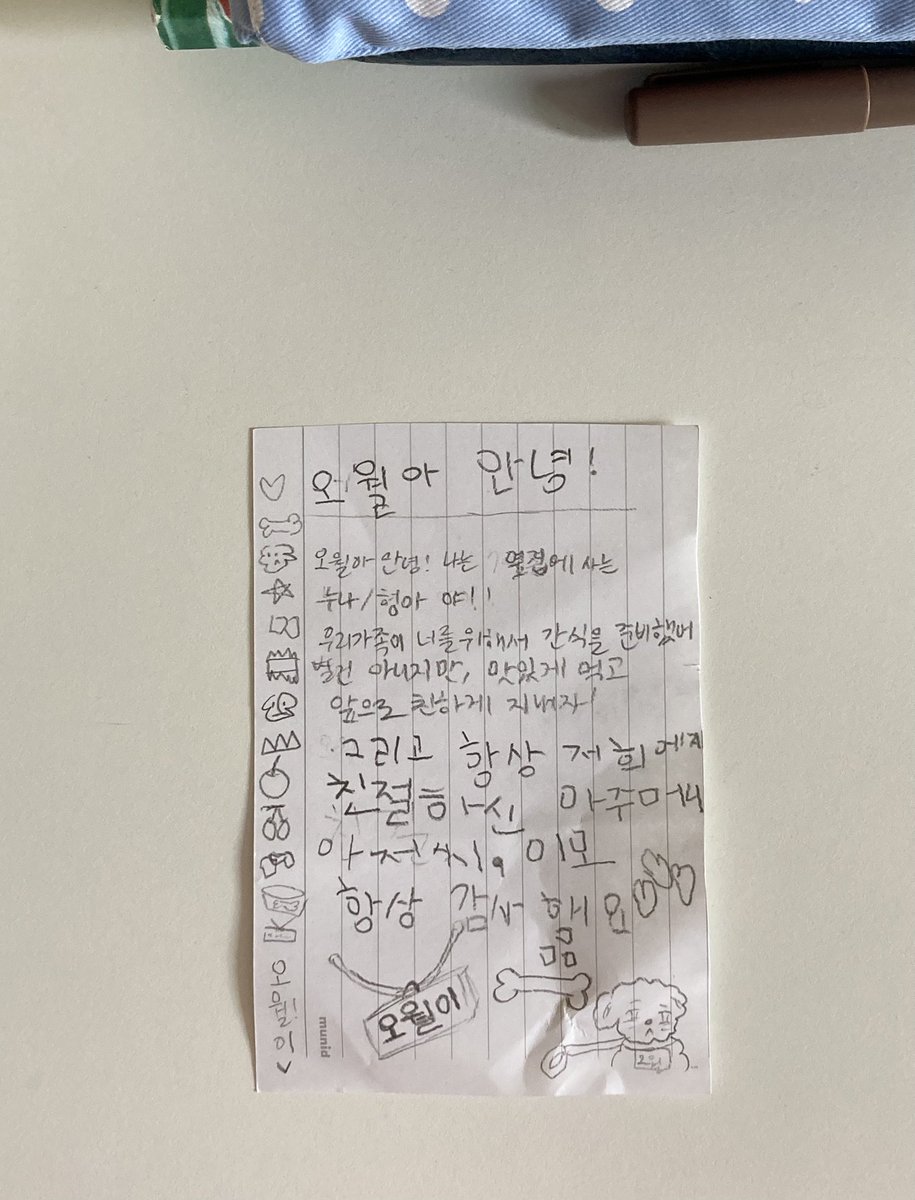 오월아 안녕!
오월아 안녕! 나는 옆집에 사는
누나/형아 야!!
우리가족이 너를위해서 간식을 준비했어
별건 아니지만, 맛있게 먹고
앞으로 친하게 지내자!
그리고 항상 저희에게
친절하신 아주머니
아저씨, 이모
항상 감사해요
오월이
munid